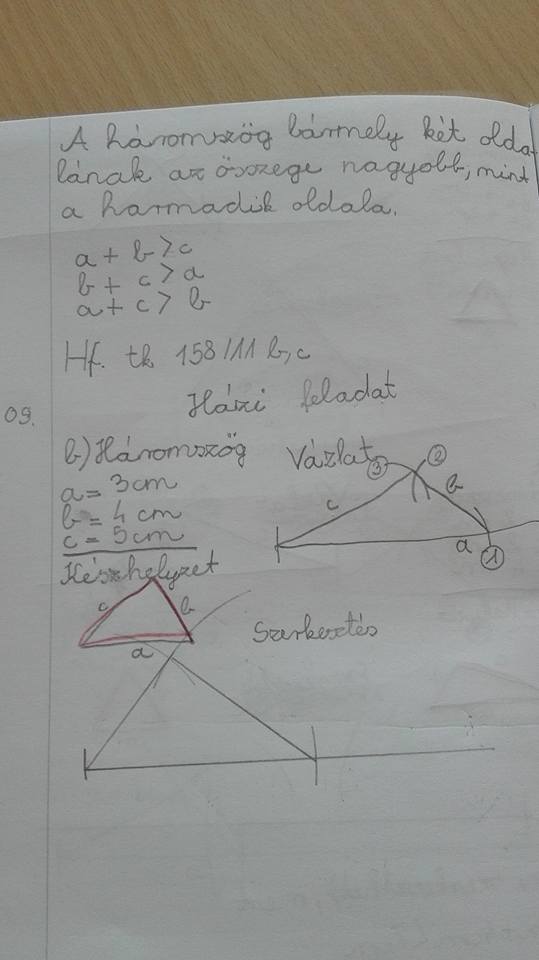 A háromszög bármely két olda-
lának az összege nagyobb, mint
a harmadik oldala.
a + b > c
b + c > a
a + c > b
Hf. tk 158/11 b, c
Házi feladat
09.
b) Háromszög
Vázlat
3
2
a = 3 cm
b = 4 cm
c = 5 cm
c
b
a
1
Készhelyzet
c
b
a
Szerkesztés